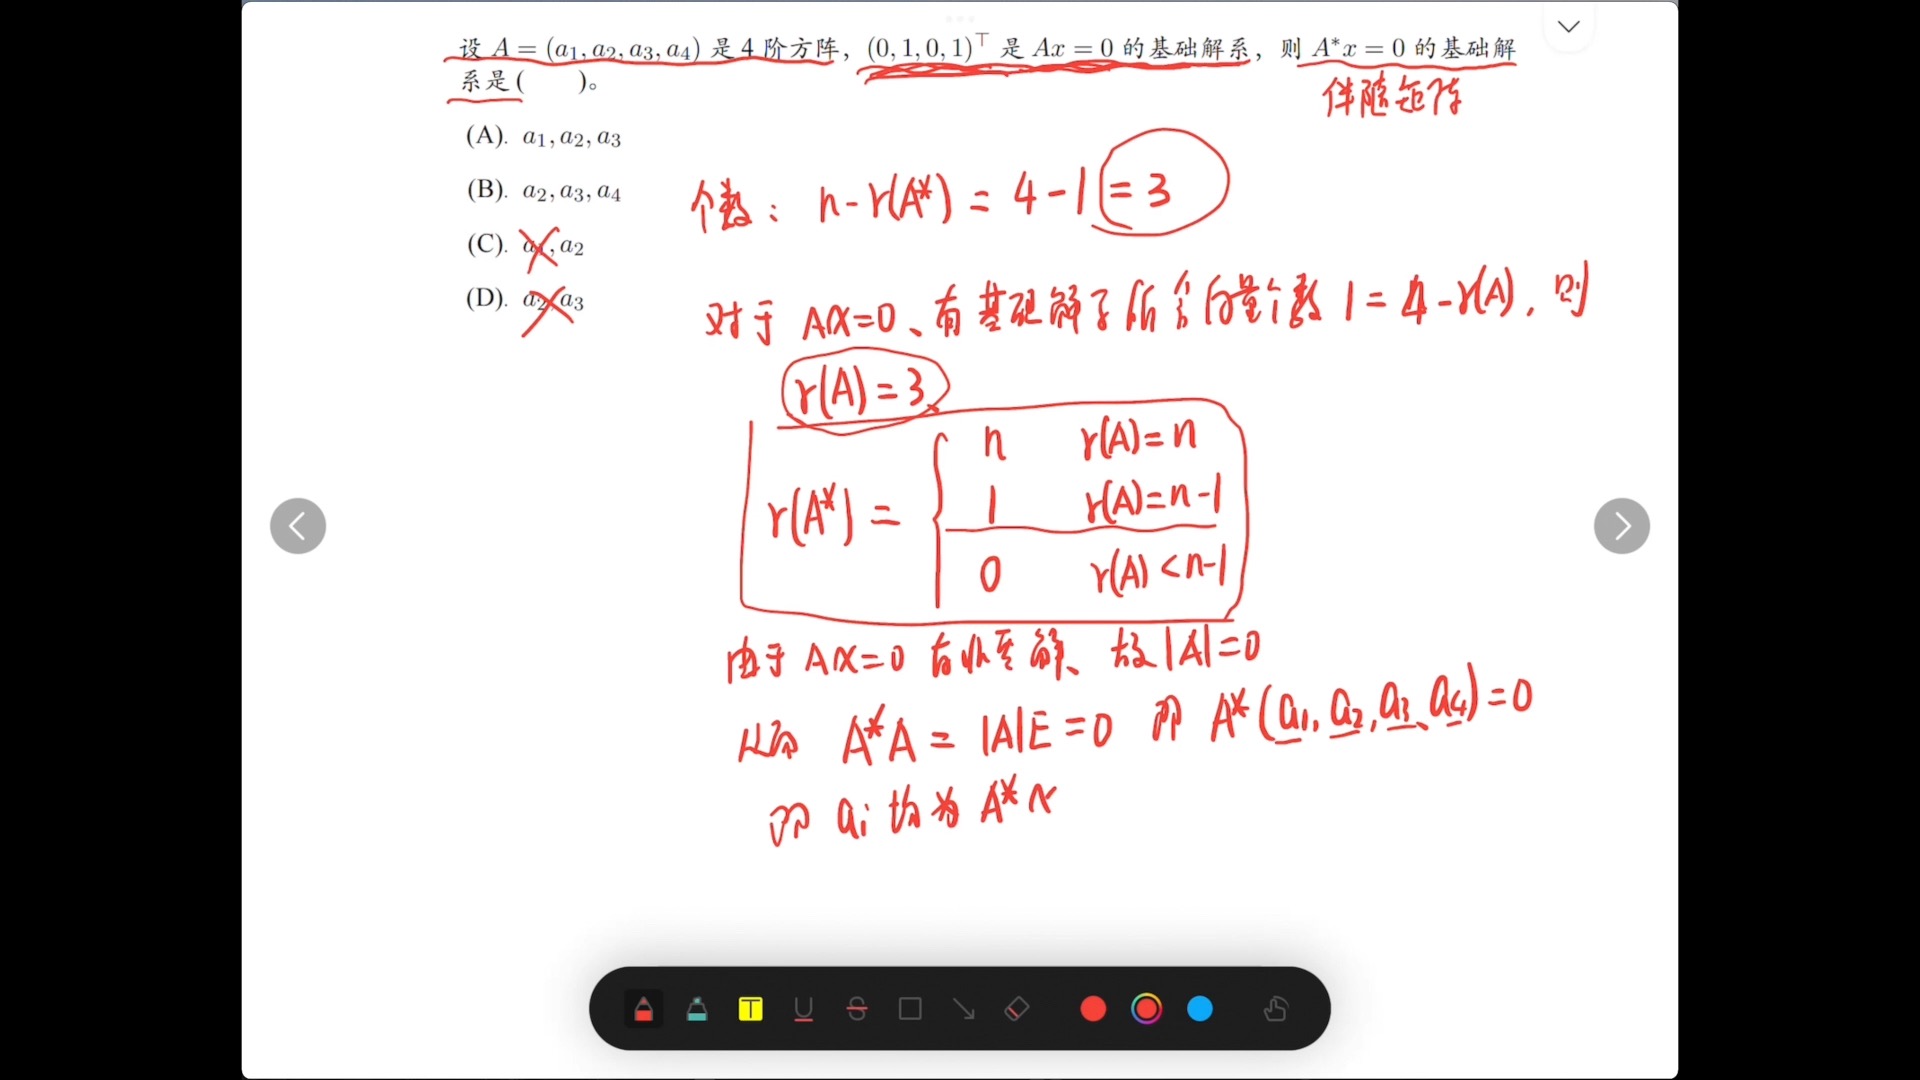 设 A = (a₁, a₂, a₃, a₄) 是 4 阶方阵，(0, 1, 0, 1)ᵀ 是 Ax = 0 的基础解系，则 A*x = 0 的基础解
系是 (　　)。
伴随矩阵
(A). a₁, a₂, a₃
(B). a₂, a₃, a₄
个数：n-r(A*) = 4-1 = 3
(C). a₁, a₂
(D). a₂, a₃
对于 AX=0、有基础解系所含向量个数 1=4-r(A)，则
r(A)=3
n r(A)=n
r(A*) = { 1 r(A)=n-1
0 r(A)<n-1
由于 AX=0 有非零解、故|A|=0
从而 A*A = |A|E = 0 即 A*(a₁, a₂, a₃, a₄)=0
即 aᵢ 均为 A*x
T U S